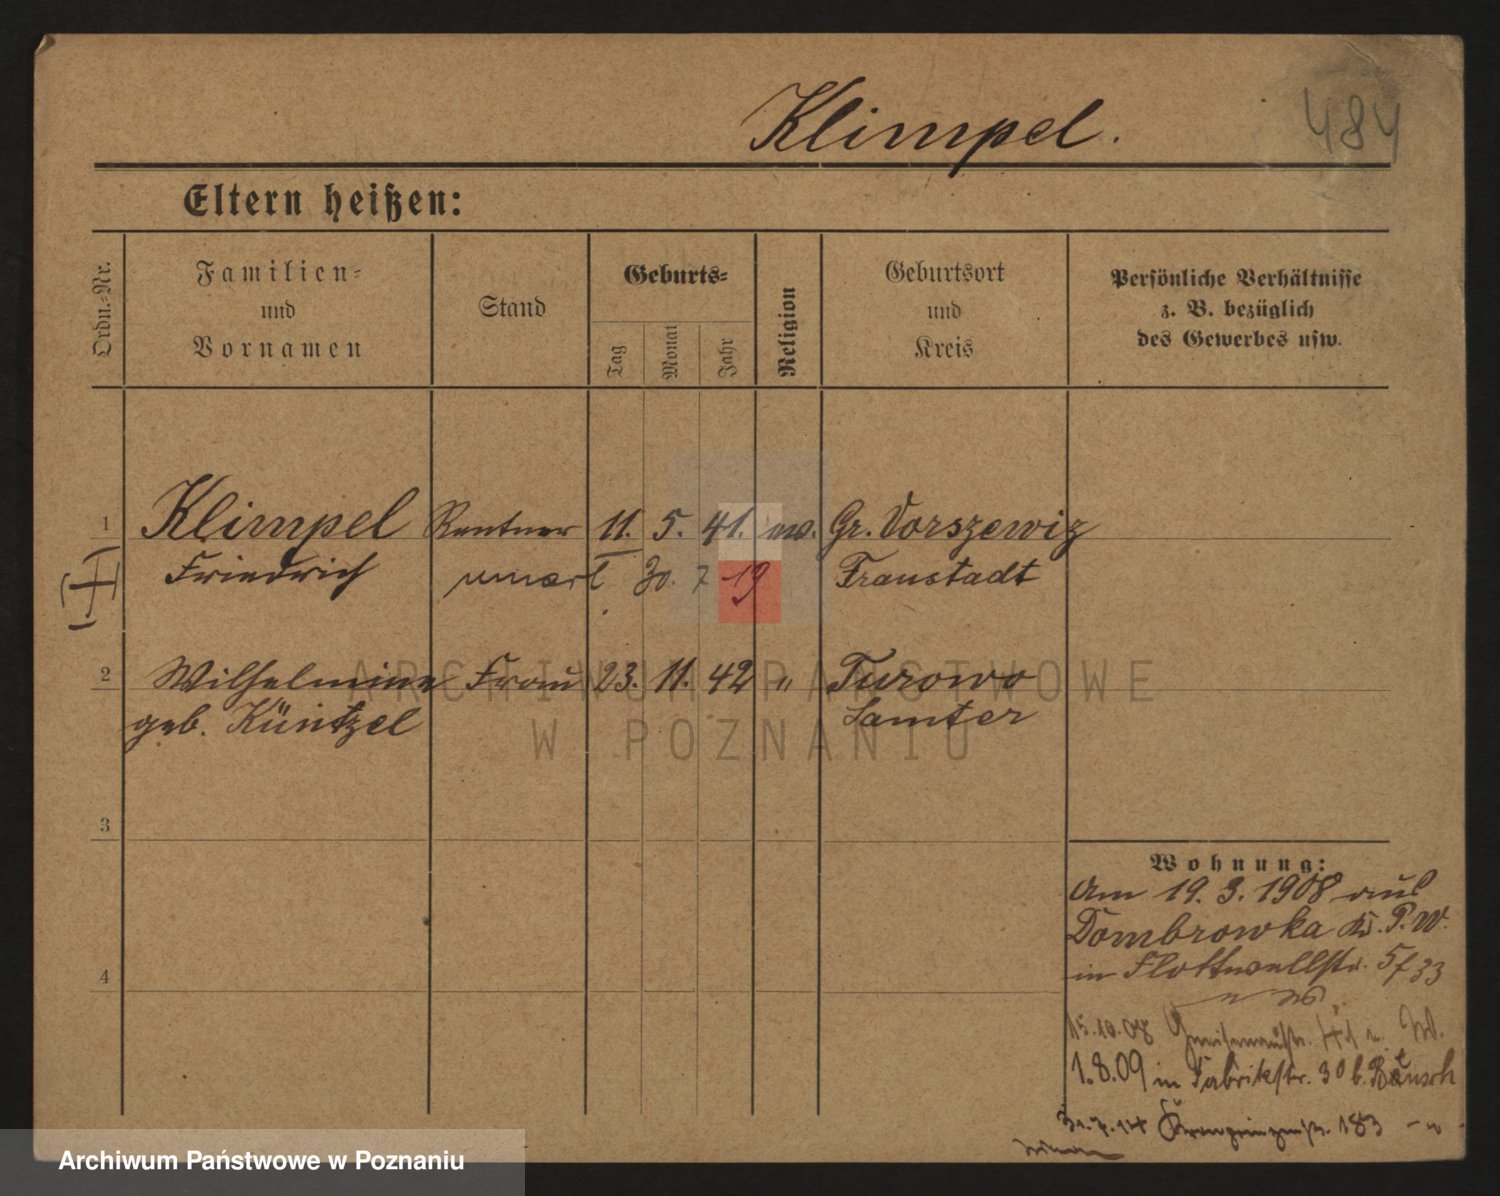 Klimpel.
484
Eltern heißen:
Ordn.-Nr.
Familien-
und
Vornamen
Stand
Geburts-
Tag
Monat
Jahr
Religion
Geburtsort
und
Kreis
Persönliche Verhältnisse
z. B. bezüglich
des Gewerbes usw.
1 Klimpel Rentner 11. 5. 41. ev. Gr. Vorszewiz
Friedrich 30. 7 19 Fraustadt
2 Wilhelmine Frau 23. 11. 42 " Turowo
geb. Küntzel Samter
3
4
Wohnung:
Am 19. 3. 1908 aus
Dombrowka Kr. P. W.
in Flottwellstr. 5
15.10.08 Gneisenaustr.
1.8.09 in Fabrikstr. 30 b.
Kronprinzenstr. 183
ARCHIWUM PAŃSTWOWE
W POZNANIU
Archiwum Państwowe w Poznaniu